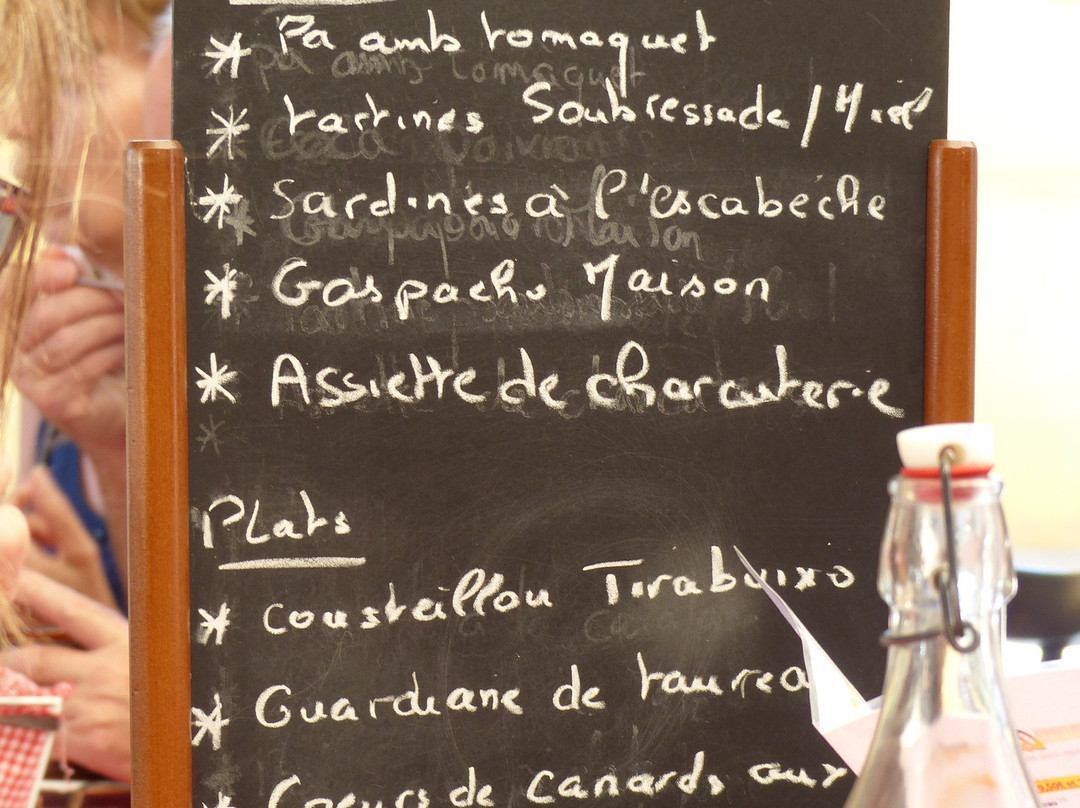 * Pa amb tomaquet
* tartines Soubressade / Miel
* Sardines à l'escabéche
* Gaspacho Maison
* Assiette de charcuterie
Plats
* cousteillou Tirabuixo
* Guardiane de taurea
* Coeurs de canards aux